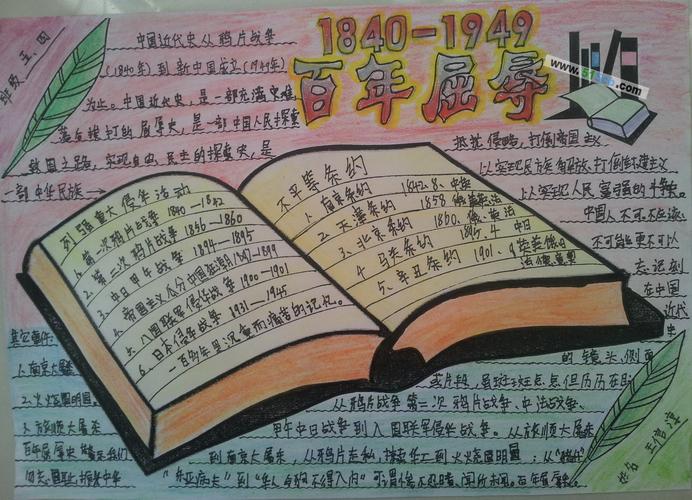 1840-1949
百年屈辱
www.51
.com
班级 五、四
中国近代史从鸦片战争
(1840年)到新中国成立(1949年)
为止。中国近代史,是一部充满灾难、
落后挨打的屈辱史,是一部中国人民探索
救国之路,实现自由、民主的探索史,是
一部中华民族
抵抗侵略,打倒帝国主义
以实现民族解放,打倒
主义
以实现人民富强的
史。
中国人不可
不可能更不可以
忘记刻
在中国
近代
史
的镜头,侧面
或片段,
点点但历历在目
从鸦片战争第二次鸦片战争、中法战争、
甲午中日战争到八国联军侵华战争。从旅顺大屠杀
到南京大屠杀,从鸦片走私,
华工到火烧圆明园;从
“东亚病夫”到“华人与狗不得入内”
列强重大侵华活动
1. 第一次鸦片战争 1840—1842
2. 第二次鸦片战争 1856—1860
3. 中日甲午战争 1894—1895
4. 帝国主义瓜分中国狂潮1897-1899
5. 八国联军侵华战争 1900—1901
6. 日本侵华战争 1931—1945
一百多年里沉重而痛苦的记忆。
不平等条约
1. 南京条约 1842.8、中英
2. 天津条约 1858 俄美英法
3. 北京条约 1860、俄、英法
4. 马关条约 1895、4 中日
5、辛丑条约 1901、9 英美俄日
法德意奥
其它事件:
1. 南京大屠杀
2. 火烧圆明园.
3. 旅顺大屠杀
百年屈辱史
我们
勿忘国耻,振兴中华
姓名